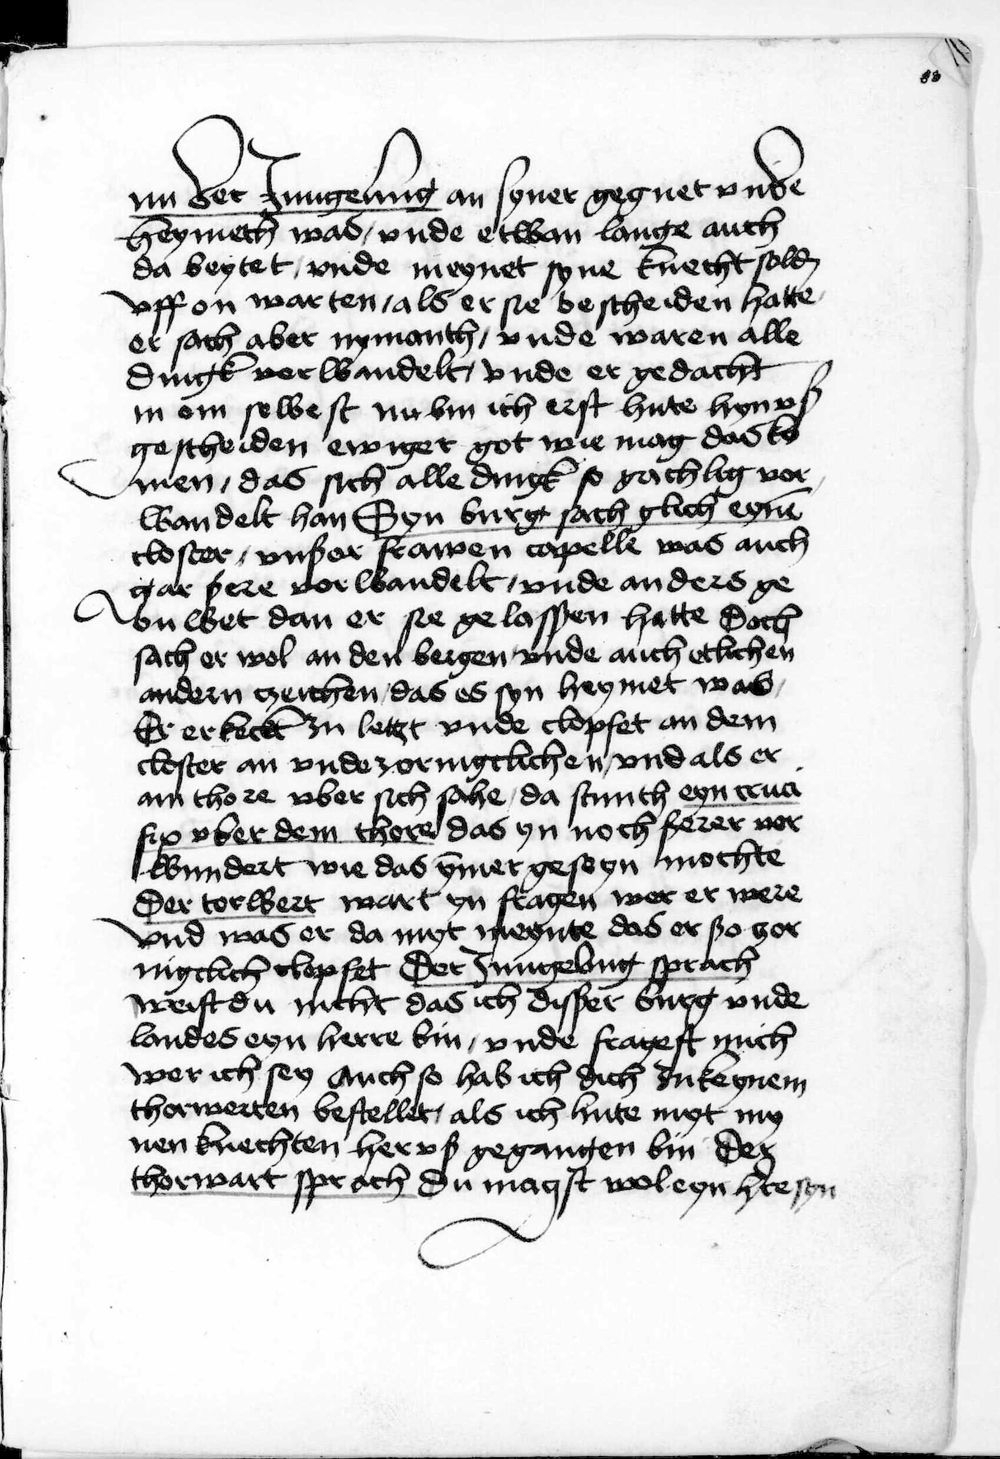 88
nu der Jungeling an syner gegnet vnde
heymeth was / vnde etwan lange auch
da beytet / vnde meynet syne knecht sold
vff on warten / als er sie bescheiden hatte /
er sach aber nymanth / vnde waren alle
dingk vorwandelt / vnde er gedacht
in om selbest nu bin ich erst hute hyn vß
gescheiden ewiger got wie mag das ko
men / das sich alle dingk so gachlig vor
wandelt han Syn burg sach glich eynē
closter / vnßer frawen capelle was auch
gar sere vorwandelt / vnde anders ge
buwet dan er sie gelassen hatte Doch
sach er wol an den bergen vnde auch etlichen
andern czeichen / das es syn heymet was /
Er erkeckt zu letzt vnde clopfet an dem
closter an vnde zorniglichen / vnd als er
am thore vber sich sahe / da stunth eyn cruci
fix vber dem thore das yn noch serer vor
wundert wie das ymer geseyn mochte
Der torwert wart yn fragen wer er were
vnd was er da myt meynte das er so zor
niglich clopfet Der Jungeling sprach
weistdu nicht das ich disser burg vnde
landes eyn herre bin / vnde fragest mich
wer ich sey Auch so hab ich dich zu keynem
thorwerten bestellet / als ich hute myt my
nen knechten her vß gegangen bin Der
thorwart sprach Du magst wol eyn h̄re syn